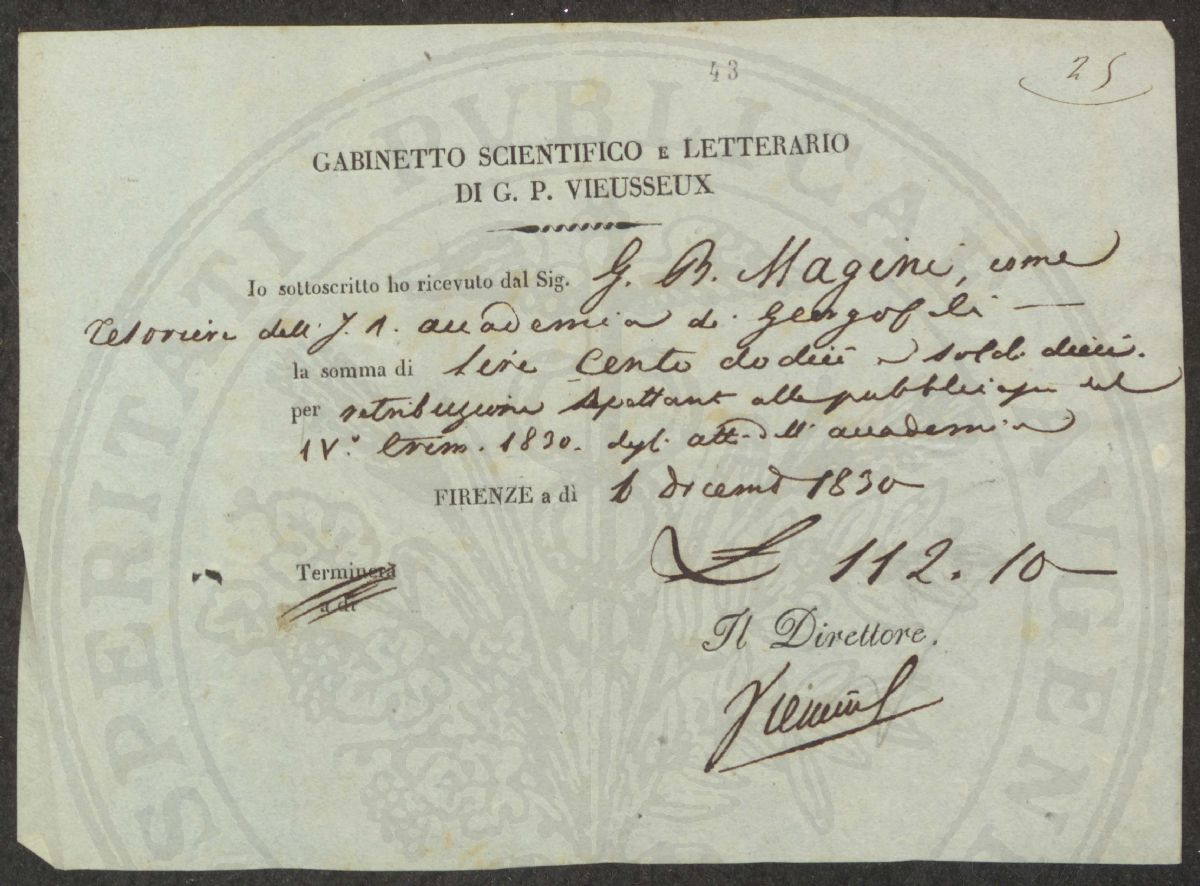 43
25
GABINETTO SCIENTIFICO E LETTERARIO
DI G. P. VIEUSSEUX
Io sottoscritto ho ricevuto dal Sig. G. B. Magini, come
Tesoriere dell' J. R. accademia de' Georgofili
la somma di Lire Cento dodici e soldi dieci.
per retribuzione spettant alla pubblicaz.ne del
IV.° trim. 1830. degli atti dell' accademia
FIRENZE a dì 1 dicemb 1830
Terminerà
a dì
£ 112. 10
Il Direttore.
Vieusseux
PROSPERITATI PVBLICAE AVGENDAE